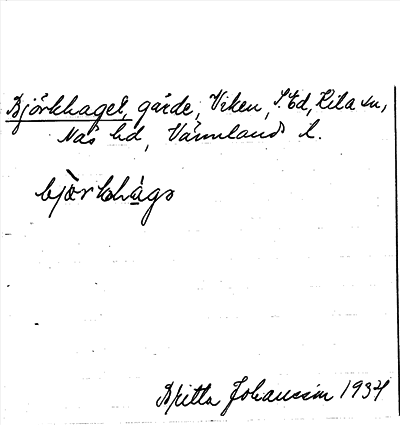 Björkhaget, gärde, Viken, S. Ed, Lila sn,
Näs hd, Värmlands l.
bjö̀rkhàgə
Britta Johansson 1934